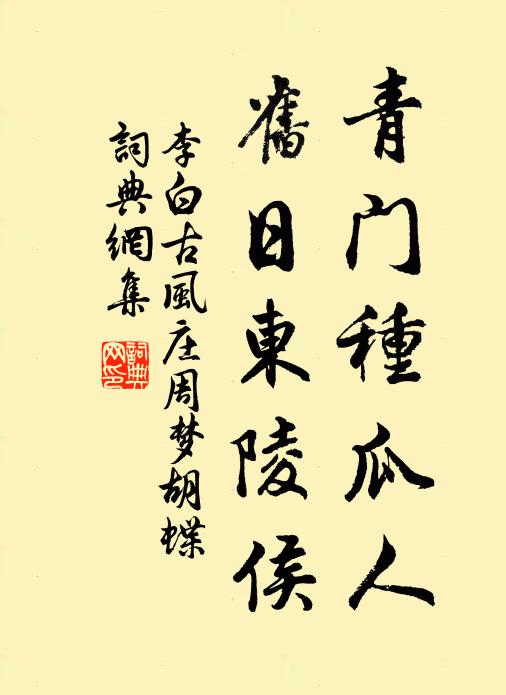 青门種瓜人
舊日東陵侯
李白古風庄周梦胡蝶
詞典網集
詞典网印